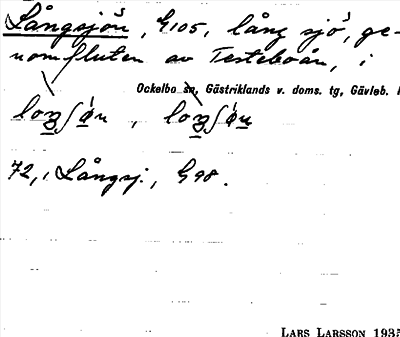 Långsjön, G105, lång sjö, ge-
nomfluten av Testeboån, i
Ockelbo sn, Gästriklands v. doms. tg, Gävleb.
72, Långsj., G98.
LARS LARSSON 1935